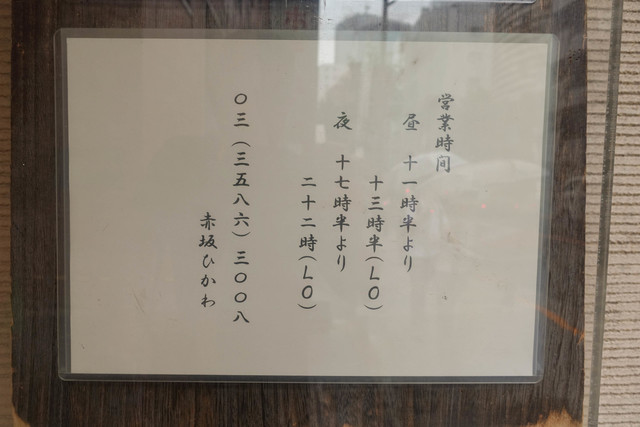 営業時間
昼 十一時半より
十三時半(LO)
夜 十七時半より
二十二時(LO)
〇三(三五八六)三〇〇八
赤坂ひかわ